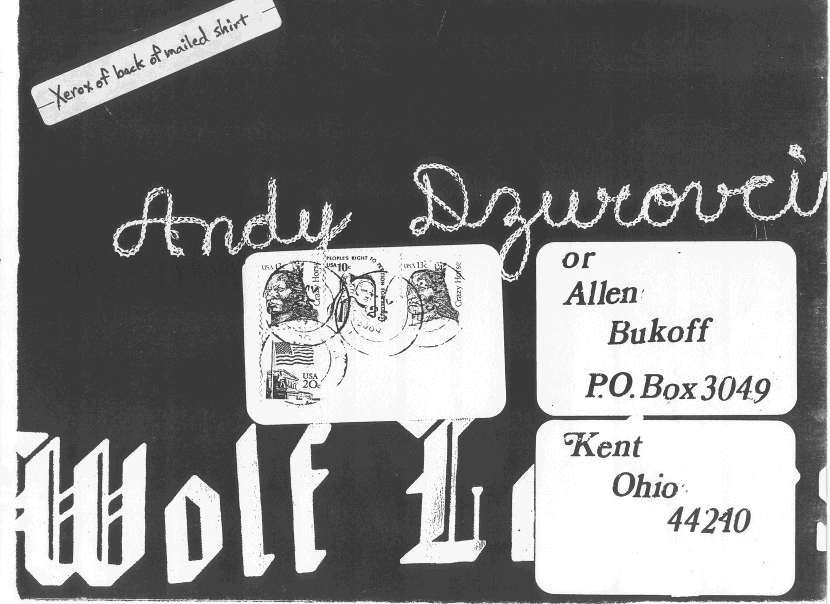 Xerox of back of mailed shirt
Andy Dzurovci
USA 13c
Crazy Horse
PEOPLE'S RIGHT TO
USA 10c
USA 13c
Crazy Horse
USA
20c
or
Allen
Bukoff
P.O. Box 3049
Kent
Ohio
44240
Wolf